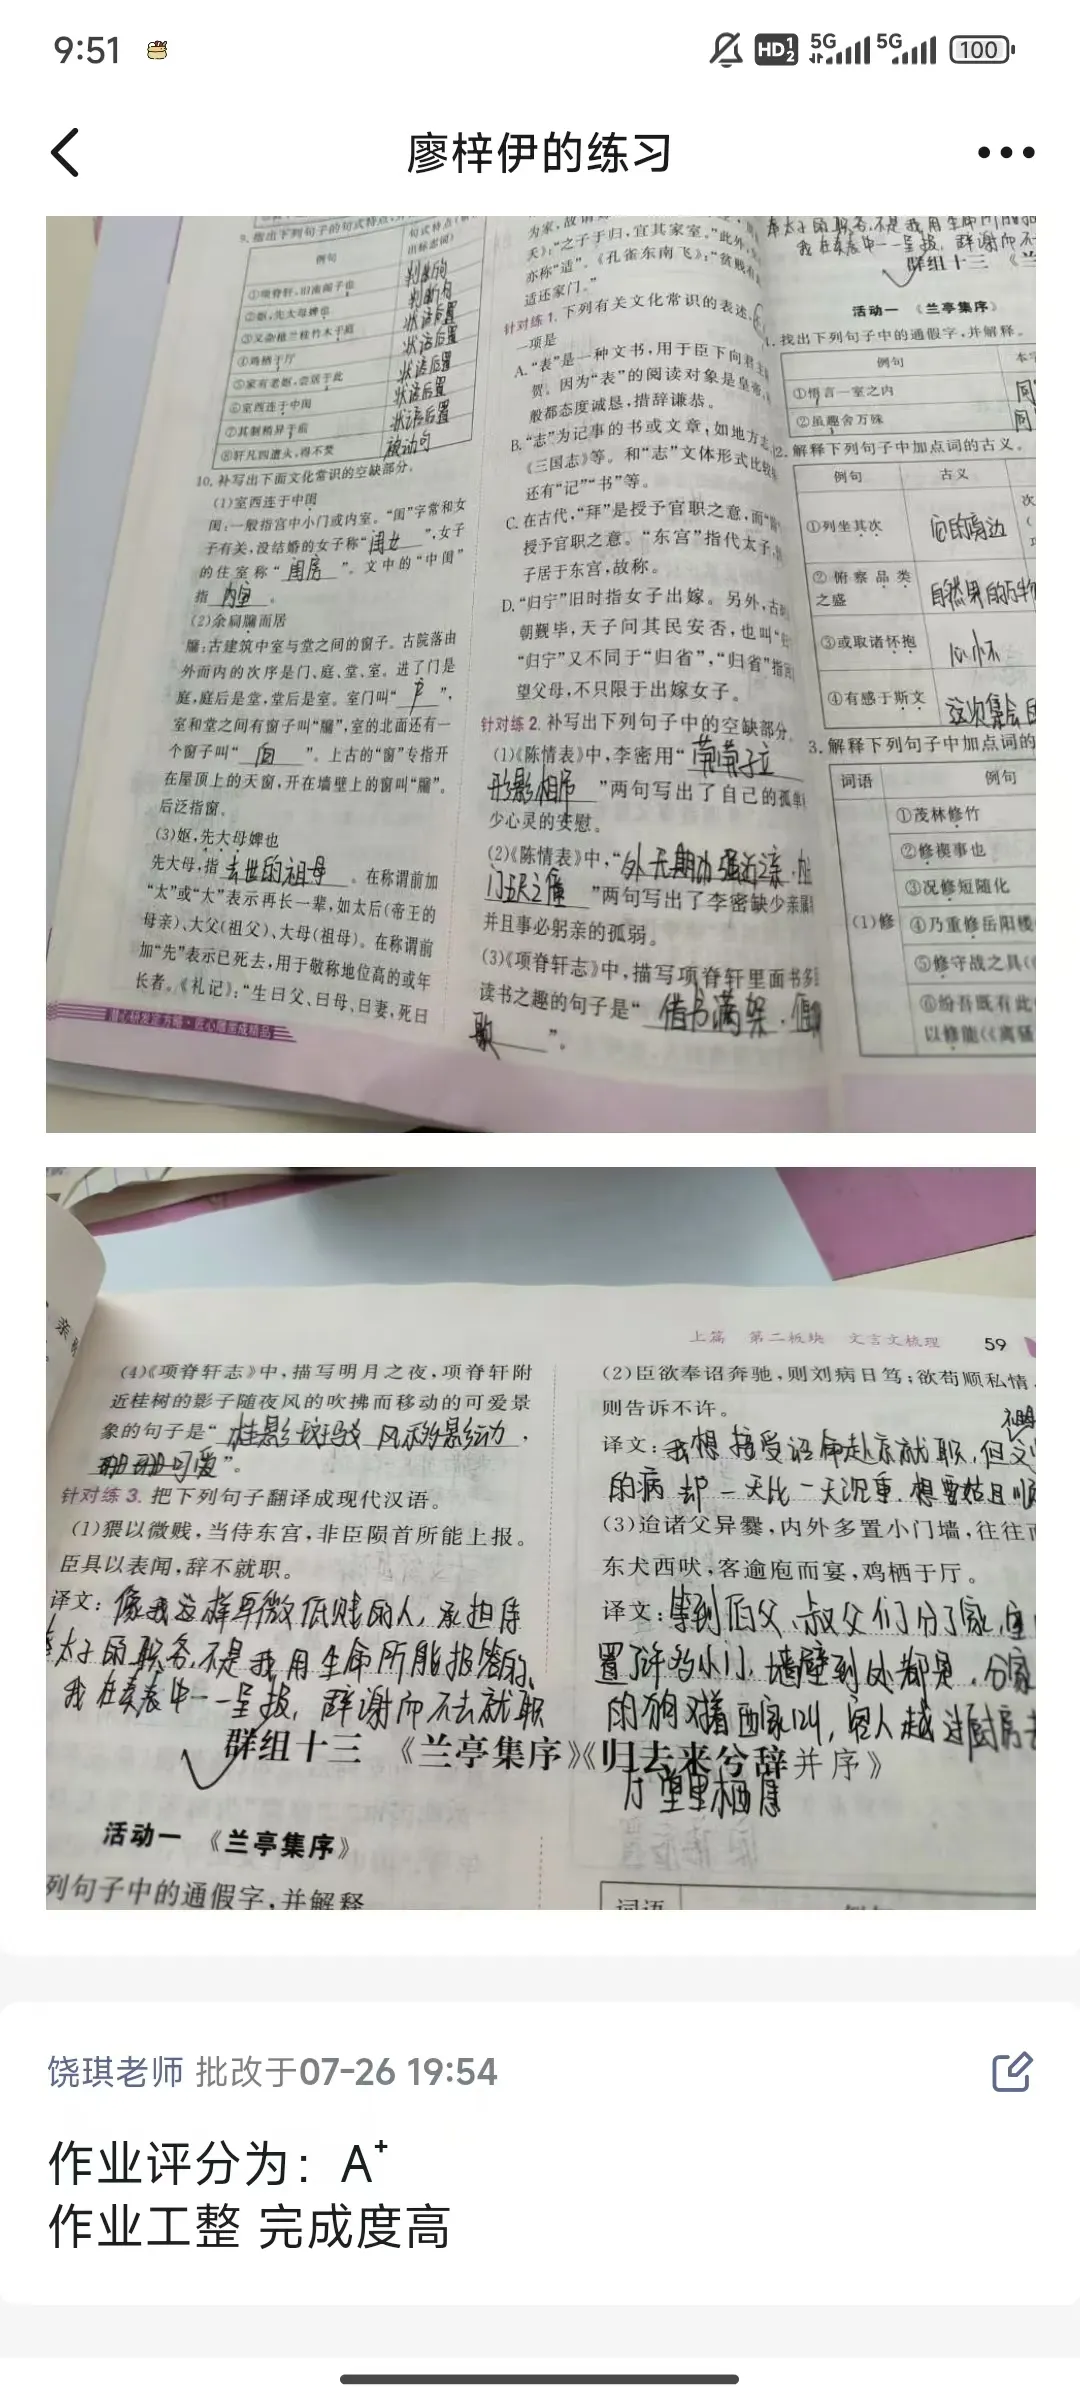 9:51
HD 1 2
5G
5G
100
廖梓伊的练习
9.指出下列句子的句式特点,
例句
句式特点(
出标志词)
①项脊轩,旧南阁子也
判断句
②妪,先大母婢也
判断句
③又杂植兰桂竹木于庭
状语后置
④鸡栖于厅
状语后置
⑤家有老妪,尝居于此
状语后置
⑥室西连于中闺
状语后置
⑦其制稍异于前
状语后置
⑧轩凡四遭火,得不焚
被动句
10.补写出下面文化常识的空缺部分。
(1)室西连于中闺
闺:一般指宫中小门或内室。“闺”字常和女
子有关,没结婚的女子称“闺女”,女子
的住室称“闺房”。文中的“中闺”
指 内室 。
(2)余扃牖而居
牖:古建筑中室与堂之间的窗子。古院落由
外而内的次序是门、庭、堂、室。进了门是
庭,庭后是堂,堂后是室。室门叫“户”,
室和堂之间有窗子叫“牖”,室的北面还有一
个窗子叫“向”。上古的“窗”专指开
在屋顶上的天窗,开在墙壁上的窗叫“牖”。
后泛指窗。
(3)妪,先大母婢也
先大母,指 去世的祖母 。在称谓前加
“太”或“大”表示再长一辈,如太后(帝王的
母亲)、大父(祖父)、大母(祖母)。在称谓前
加“先”表示已死去,用于敬称地位高的或年
长者。《礼记》:“生曰父、曰母、曰妻,死曰
为家,故
天》:“之子于归,宜其家室。”此外,
亦称“适”。《孔雀东南飞》:“贫贱有
适还家门。”
针对练1.下列有关文化常识的表述,
一项是
A.“表”是一种文书,用于臣下向君主
贺。因为“表”的阅读对象是皇帝,
般都态度诚恳,措辞谦恭。
B.“志”为记事的书或文章,如地方志
《三国志》等。和“志”文体形式比较
还有“记”“书”等。
C.在古代,“拜”是授予官职之意,而“
授予官职之意。“东宫”指代太子,
子居于东宫,故称。
D.“归宁”旧时指女子出嫁。另外,古
朝觐毕,天子问其民安否,也叫“
“归宁”又不同于“归省”,“归省”指
望父母,不只限于出嫁女子。
针对练2.补写出下列句子中的空缺部分。
(1)《陈情表》中,李密用“茕茕孑立
形影相吊”两句写出了自己的孤单
少心灵的安慰。
(2)《陈情表》中,“外无期功强近之亲,内
门五尺之僮”两句写出了李密缺少亲属
并且事必躬亲的孤弱。
(3)《项脊轩志》中,描写项脊轩里面书多
读书之趣的句子是“借书满架,偃
歌”。
奉太子的职务,不是我用生命所
我在奏表中一一呈报,辞谢而不
群组十三
活动一 《兰亭集序》
1.找出下列句子中的通假字,并解释。
例句
①悟言一室之内
同
②虽趣舍万殊
同
2.解释下列句子中加点词的古义。
例句
古义
①列坐其次
它的旁边
②俯察品类
之盛
自然界的万物
③或取诸怀抱
心怀
④有感于斯文
这次集会
3.解释下列句子中加点词的
词语
例句
(1)修
①茂林修竹
②修禊事也
③况修短随化
④乃重修岳阳楼
⑤修守战之具
⑥纷吾既有此
以修能(《离骚
上篇 第二板块 文言文梳理 59
(4)《项脊轩志》中,描写明月之夜,项脊轩附
近桂树的影子随夜风的吹拂而移动的可爱景
象的句子是“桂影斑驳 风移影动,
珊珊可爱”。
针对练3.把下列句子翻译成现代汉语。
(1)猥以微贱,当侍东宫,非臣陨首所能上报。
臣具以表闻,辞不就职。
译文:像我这样卑微低贱的人,承担侍
奉太子的职务,不是我用生命所能报答的,
我在奏表中一一呈报,辞谢而不去就职
(2)臣欲奉诏奔驰,则刘病日笃;欲苟顺私情,
则告诉不许。
译文:我想接受诏命赴京就职,但
祖母
的病却一天比一天沉重,想要姑且顺
(3)迨诸父异爨,内外多置小门墙,往往
东犬西吠,客逾庖而宴,鸡栖于厅。
译文:等到伯父、叔父们分了家,室
置了许多小门,墙壁到处都是,分家
的狗对着西家叫,客人越过厨房去
厅堂里栖息
群组十三 《兰亭集序》《归去来兮辞并序》
活动一 《兰亭集序》
列句子中的通假字,并解释
词语
饶琪老师 批改于07-26 19:54
作业评分为：A⁺
作业工整 完成度高